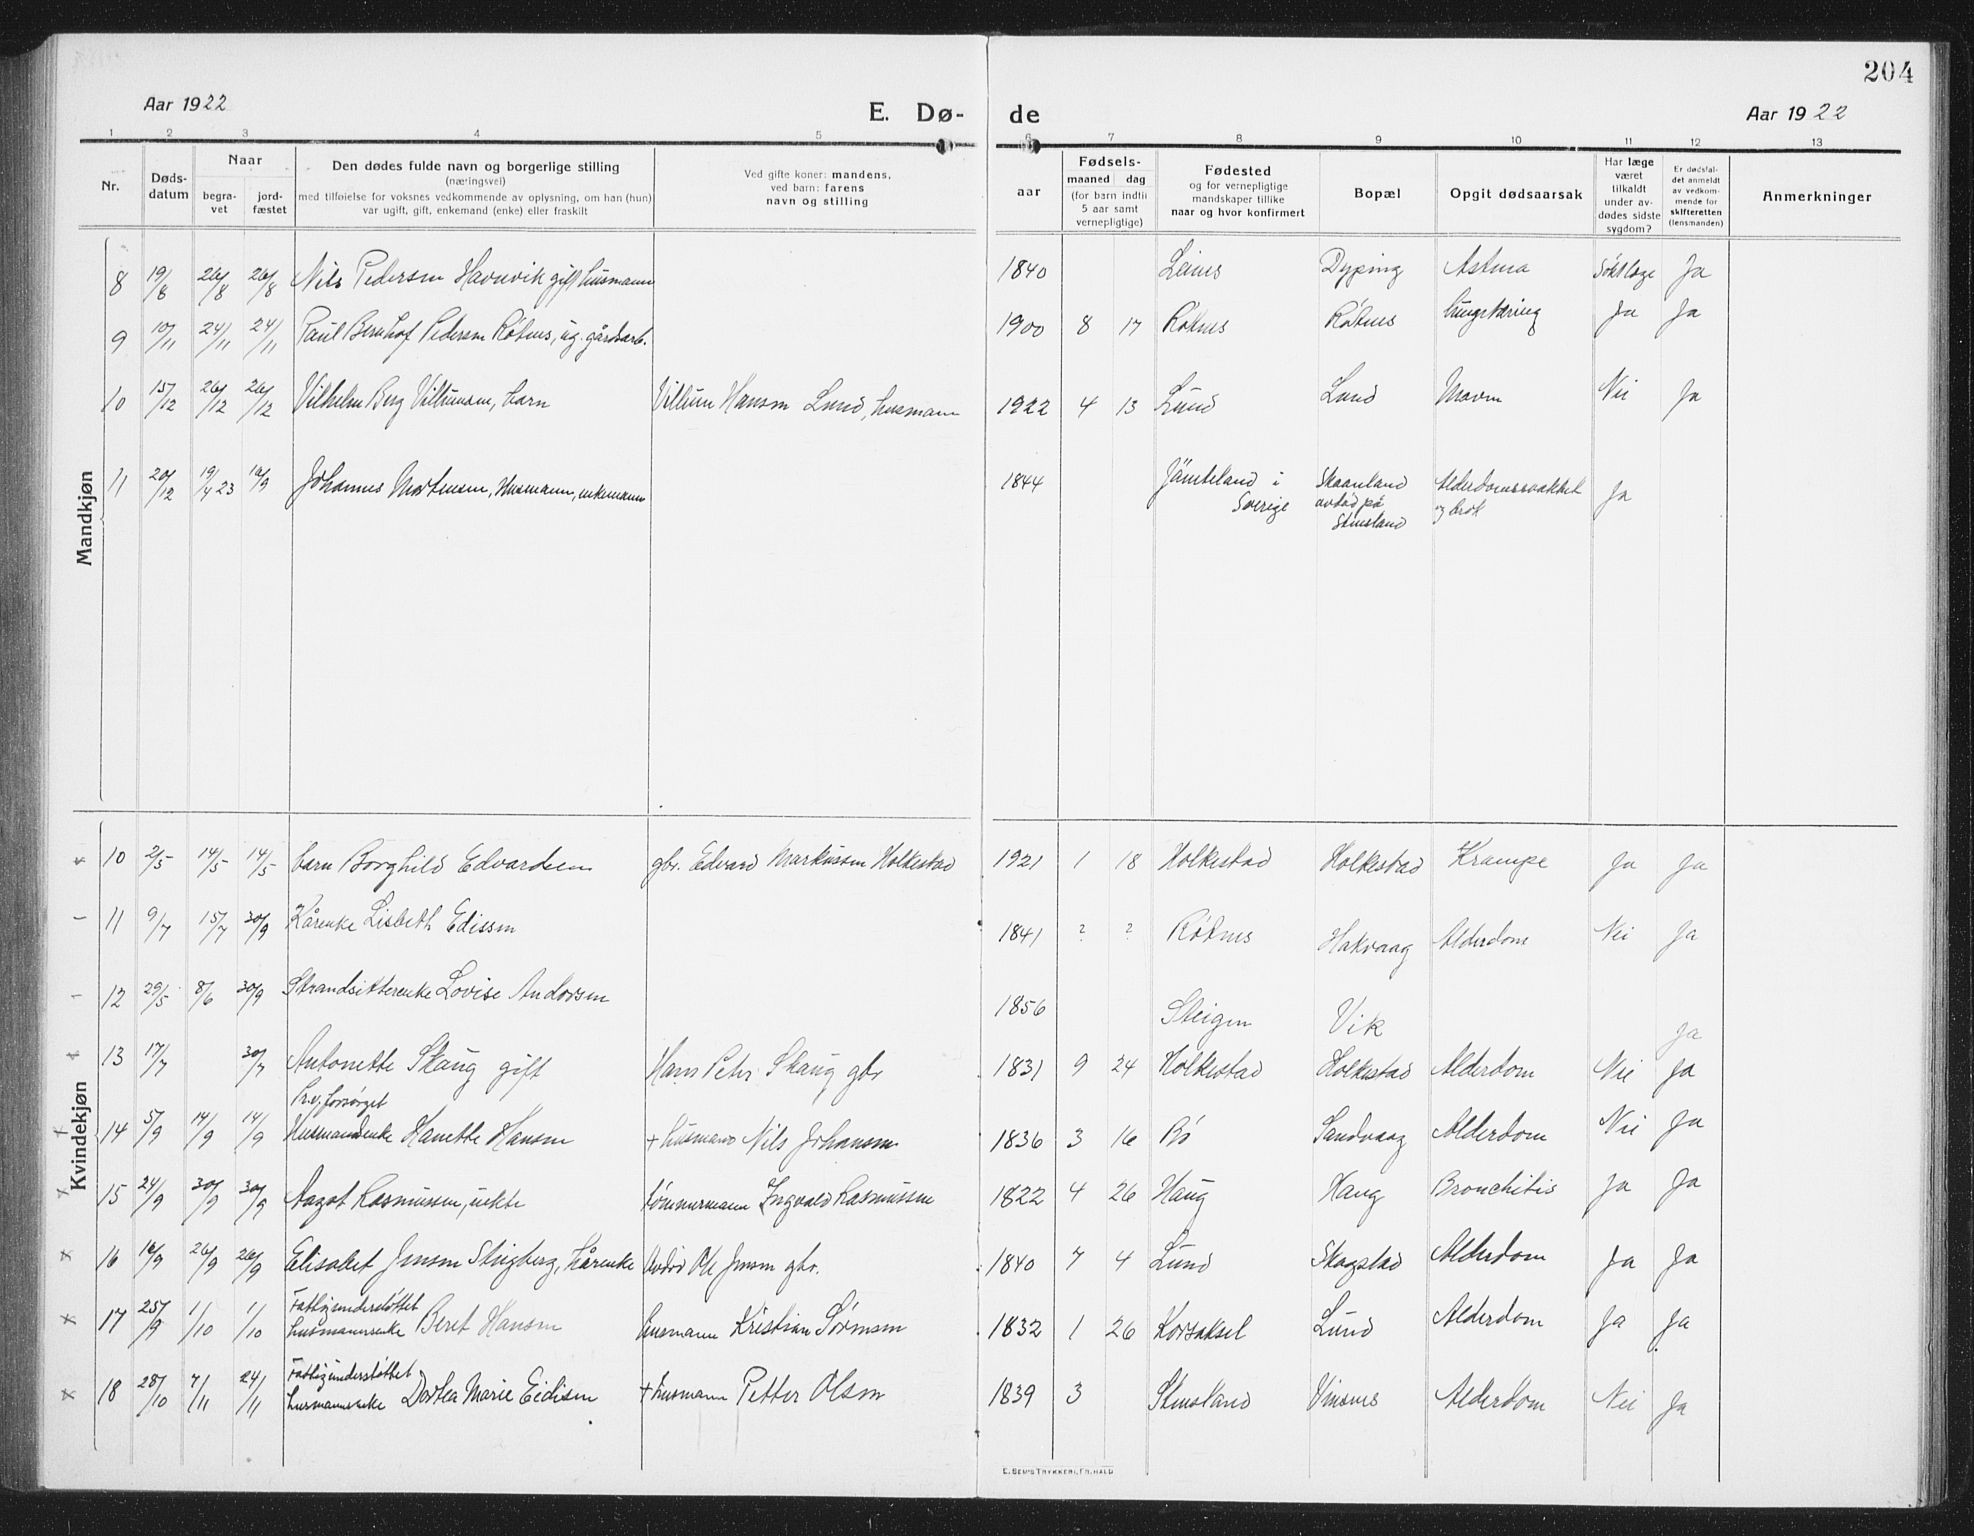 204
Aar 1922
E. Dø-
de
Aar 1922
1 2 3 4 5 6 7 8 9 10 11 12 13
Nr.
Døds-
datum
Naar
begra-
vet
jord-
fæstet
Den dødes fulde navn og borgerlige stilling
(næringsvei)
med tilføielse for voksnes vedkommende av oplysning, om han (hun)
var ugift, gift, enkemand (enke) eller fraskilt
Ved gifte koner: mandens,
ved barn: farens
navn og stilling
aar
Fødsels-
maaned dag
(for barn indtil
5 aar samt
vernepligtige)
Fødested
og for vernepligtige
mandskaper tillike
naar og hvor konfirmert
Bopæl
Opgit dødsaarsak
Har læge
været
tilkaldt
under av-
dødes sidste
sygdom?
Er dødsfal-
det anmeldt
av vedkom-
mende for
skifteretten
(lensmanden)
Anmerkninger
Mandkjøn
8 19/8 26/8 26/8 Nils Pedersen Havnvik gift husmann 1840 Leines Dyping Astma Søkt læge Ja
9 10/11 24/11 24/11 Paul Bernhof Pedersen Røtnes, ug. gårdsarb. 1900 8 17 Røtnes Røtnes Lungetæring Ja Ja
10 15/12 26/12 26/12 Vilhelm Berg Villumsen, barn Villum Hansen Lund, husmann 1922 4 13 Lund Lund Maven Nei Ja
11 20/12 19/4 23 10/9 Johannes Mortensen, Husmann, enkemann 1844 Jämteland i Skaanland Alderdomssvakhet Ja
Sverige avdød på og brok
Stensland
Kvindekjøn
10 2/5 14/5 14/5 barn Borghild Edvardsen gbr. Edvard Markussen Holkestad 1921 1 18 Holkestad Holkestad Krampe Ja Ja
11 9/7 15/7 30/9 Kårenke Lisbeth Edissen 1841 ? ? Røtnes Hakvaag Alderdom Nei Ja
12 29/5 8/6 30/9 Strandsitterenke Lovise Andorsen 1856 Steigen Vik Ja
13 17/7 30/7 Antonette Skaug gift Hans Peter Skaug gbr 1831 9 24 Holkestad Holkestad Alderdom Nei Ja
forsørget
14 5/9 14/9 14/9 Husmandsenke Hanette Hansen + husmand Nils Johansen 1836 3 16 Bø Sandvaag Alderdom Nei Ja
15 24/9 30/9 30/9 Aagot Rasmussen, uekte tømmermann Ingvald Rasmussen 1822 4 26 Haug Haug Bronchitis Ja Ja
16 16/9 26/9 26/9 Elisabet Jensen Stigberg, kårenke Avdød Ole Jensen gbr. 1840 7 4 Lund Skagstad Alderdom Ja Ja
Fattigunderstøttet
17 25/9 1/10 1/10 husmannsenke Beret Hansen husmann Kristian Sørensen 1832 1 26 Korsaksel Lund Alderdom Ja Ja
Fattigunderstøttet
18 28/10 7/11 24/11 husmannsenke Dortea Marie Eidisen + husmann Petter Olsen 1839 3 Stensland Vinsnes Alderdom Nei Ja
E. SEM'S TRYKKERI, FR.HALD